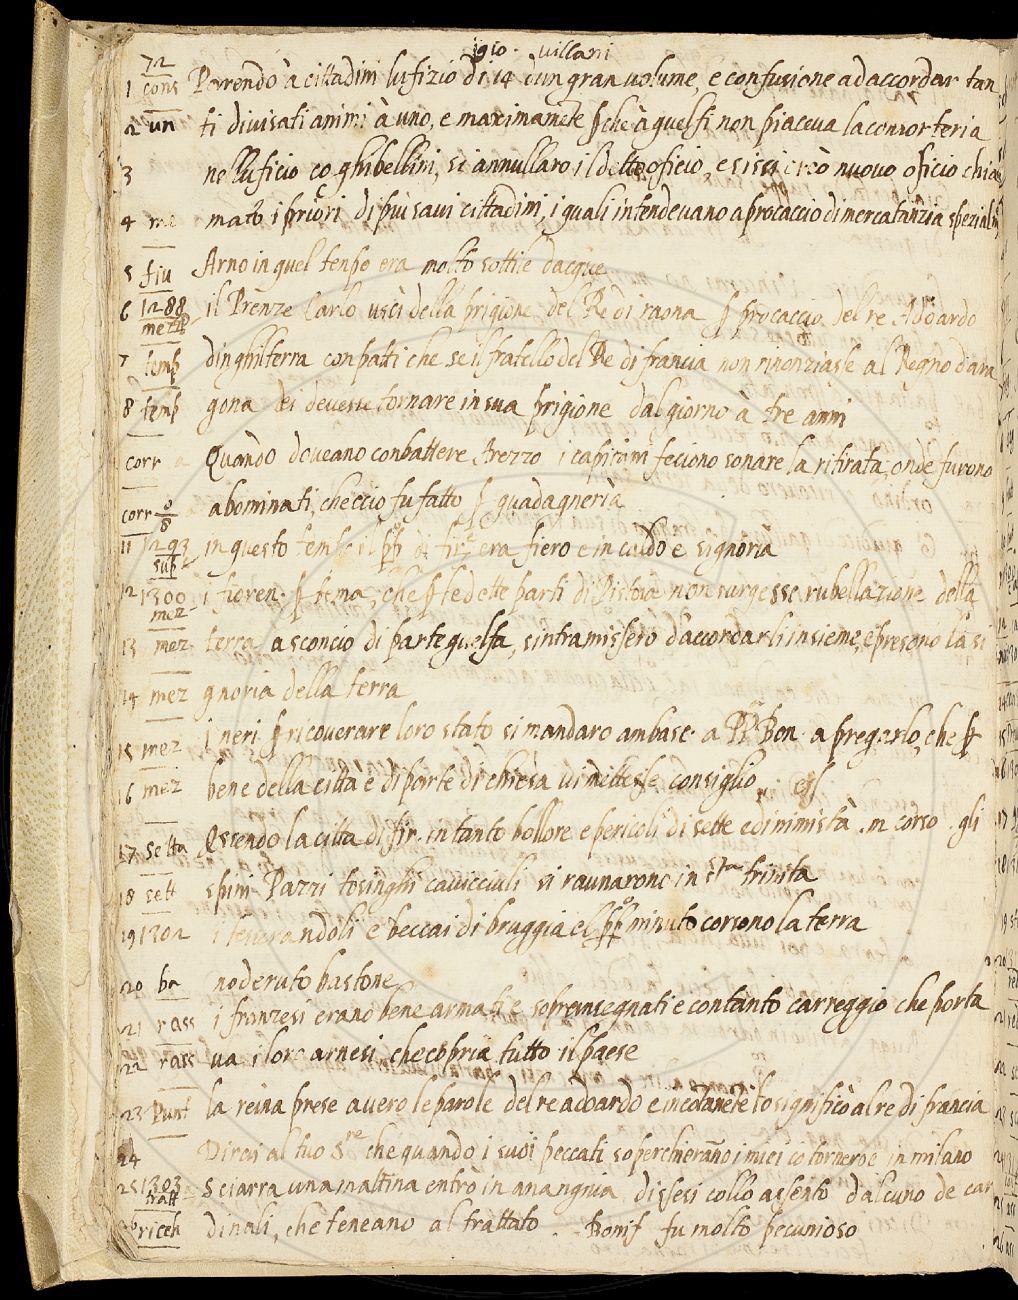 72 villani
1 cons Parendo à cittadini lufizio di 14 e un gran volume, e confusione ad accordar tan
2 un ti divisati animi à uno, e maximamẽte ꝑche à guelfi non piaceva la consorteria
3 nelluficio cõ ghibellini, si annullaro il detto oficio, e si creò nuovo oficio chia
4 mato i priori di piu savi cittadini, i quali intendevano a procaccio di mercatanzia
5 fiu Arno in quel tenpo era molto sottile dacque
6 1288 mez il Prenze Carlo uscì della prigione del Re di raona ꝑ procaccio del re Adoardo
7 temp dinghilterra con patti che se il fratello del Re di francia non rinonziasse al Regno dara
8 temp gona ei devesse tornare in sua prigione dal giorno à tre anni
corr Quando doveano conbattere Arezzo i capitani feciono sonare la ritirata, onde furono
corr 8 abominati, che ciò fu fatto ꝑ guadagneria
11 1293 sup in questo tempo il di fir. era fiero e in caldo e signoria
12 1300 mez i fioren. ꝑ tema, che ꝑ le dette parti di Pistoia non surgesse rubellazione della
13 mez terra a sconcio di parte guelfa, sintramissero daccordarli insieme, e presono la si
14 mez gnoria della terra
15 mez I neri ꝑ ricoverare loro stato si mandaro ambasc. a PP Bon. a pregarlo, che ꝑ
16 mez bene della citta e di parte di chiesa vi mettesse consiglio
17 setta Essendo la citta di fir. in tanto bollore e pericoli di sette e di nimistà. m. corso. gli
18 sett spini Pazzi tosinghi cavicciuli si raunarono in sta trinita
19 1302 e beccai di bruggia minuto corsono la terra
20 ba noderuto bastone
21 rass i franzesi erano bene armati e sopransegnati e con tanto carreggio che porta
22 rass va i loro arnesi, che copria tutto il paese
23 Punt la reina prese a vero le parole del re adoardo e incõtanẽte lo significò al re di francia
24 Dirai al tuo Sre che quando i suoi peccati soperchieranno i miei io tornerò in milano
25 1303 tratt Sciarra una mattina entrò in anangnia di stesi collo assento dalcuno de car
26 ricch dinali, che teneano al trattato. Bonif fu molto pecunioso